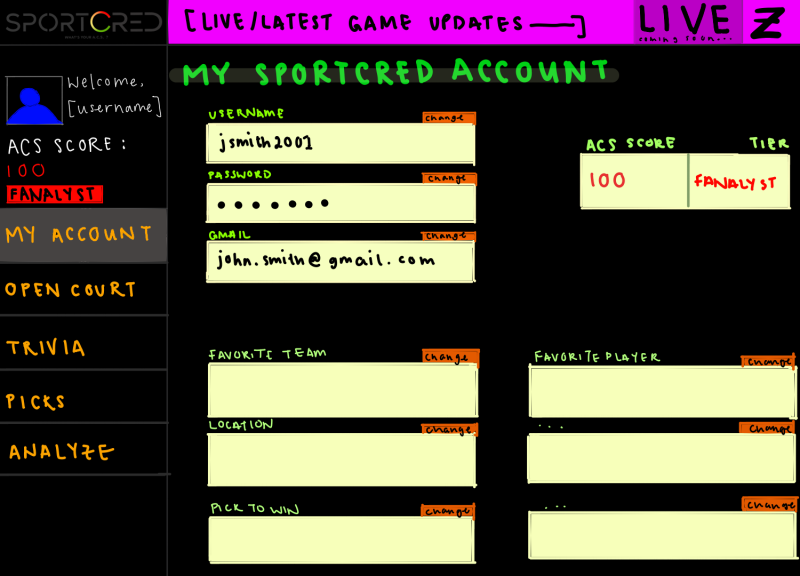 SPORTCRED
[LIVE/LATEST GAME UPDATES——]
LIVE
coming soon...
Z
MY SPORTCRED ACCOUNT
Welcome,
[username]
ACS SCORE:
100
FANALYST
MY ACCOUNT
OPEN COURT
TRIVIA
PICKS
ANALYZE
USERNAME change
jsmith2001
PASSWORD change
•••••••
GMAIL change
john.smith@gmail.com
ACS SCORE TIER
100 FANALYST
FAVORITE TEAM change
FAVORITE PLAYER change
LOCATION change
... change
PICK TO WIN change
... change